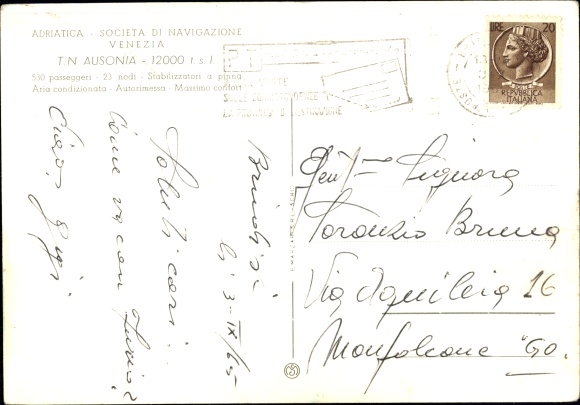 ADRIATICA - SOCIETÀ DI NAVIGAZIONE
VENEZIA
T/N AUSONIA - 12000 t.s.l.
530 passeggeri - 23 nodi - Stabilizzatori a pinna
Aria condizionata - Autorimessa - Massimo confort
LIRE 20
REPVBBLICA
ITALIANA
SULLE CORRISPONDENZE
Brindisi
li 3-IX/65
Saluti cari.
Come va con Furio?
Ciao, Gigi.
Gent/ma Signora
Toranzio Bruna
Via Aquileia 16
Monfalcone "Go.